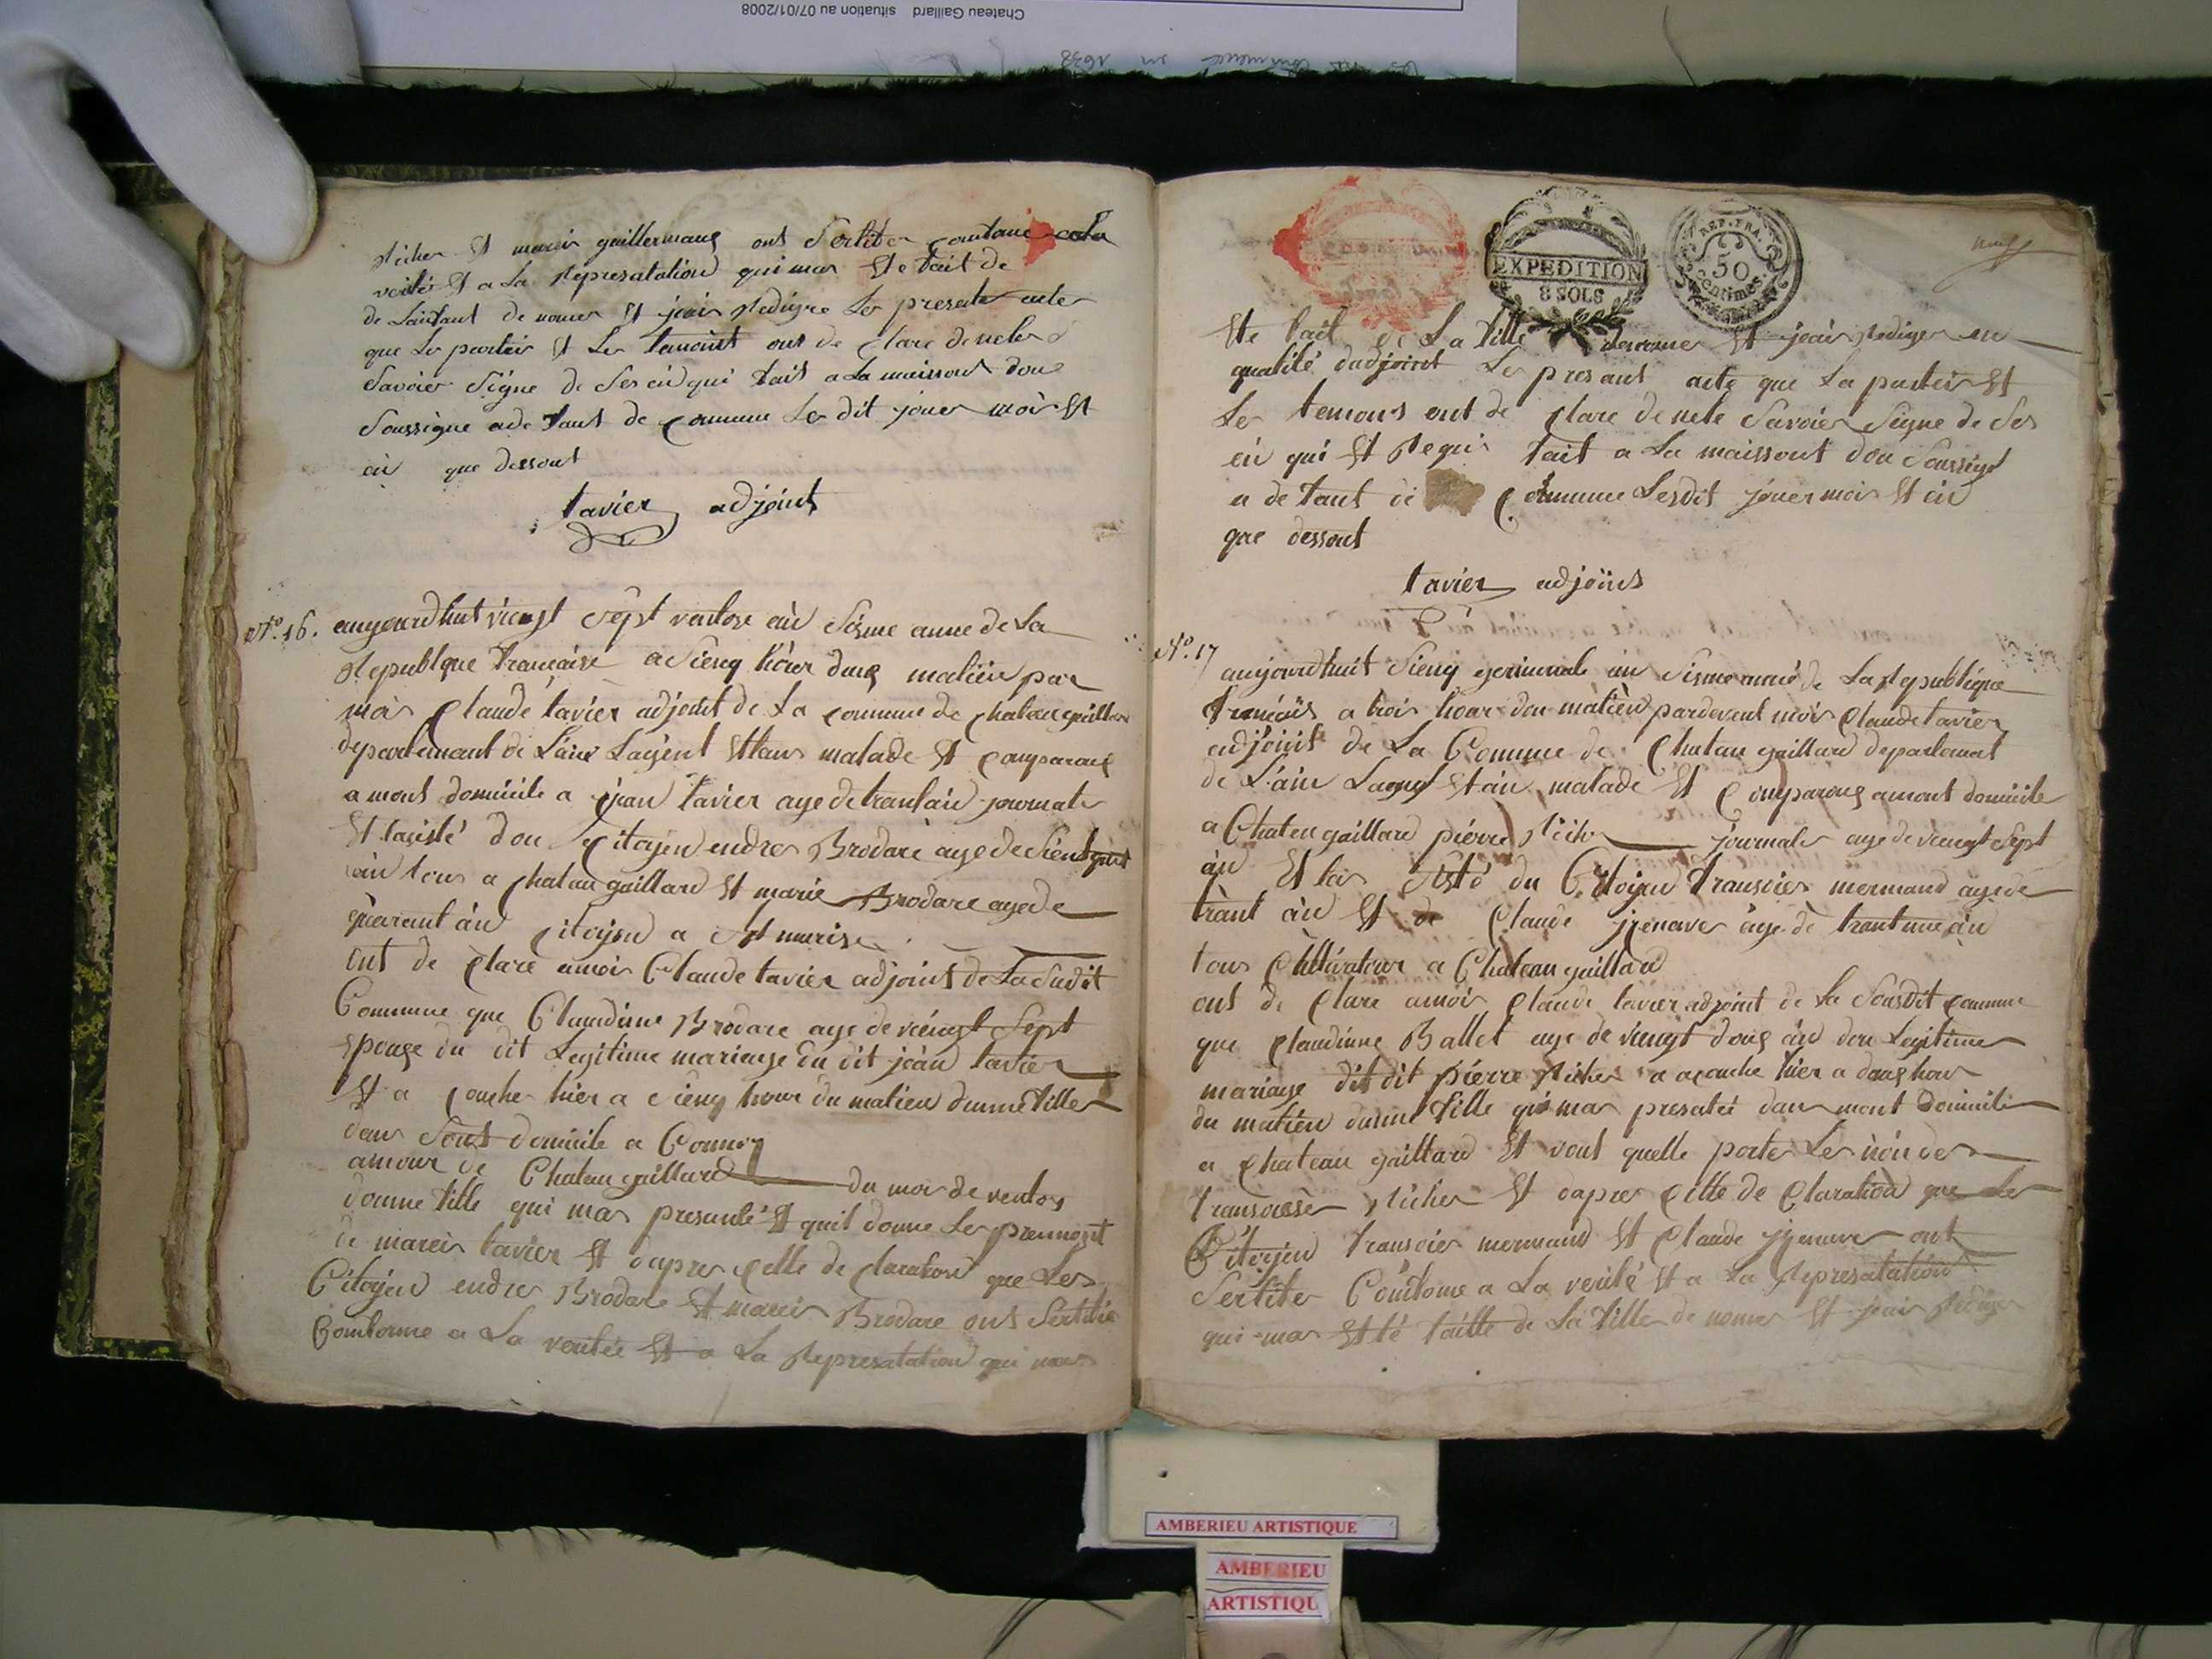 Chateau Gaillard situation au 07/01/2008
en 1638
Richer Et marie guillermang ont Sertifier
verité Et a La Represatation qui mas Ete fait de
de Lanfant de nomer Et jeair Rediger Les presate acte
que Les parteir Et Les Tamoint ont de Clare de nete
Savoier Signe de Ses eid qui fait a La maissout dou
Soussigne ade Tant de Comune Les dit jouer mois Et
ein que dessout
tavier adjoint
N°. 16. augourdhut viengt Sept ventose ein Sisme anne de La
Republque Francaise a Sieng hôer dug matiein par
mois Claude tavier adjoint de La Comune de Chatau gaillar
departemant de L'ain Lagent Ettan malade Et Comparang
a mont domicile a jean tavier age de trantain journale
Et lasisté dou Citoyen endres Brodare age de
ain tous a Chatau gaillard Et marie Brodare age de
quarant ain Citoyen a St muris
ont de Clare amois Claude tavier adjoint de La Sudit
Commune que Claudine Brodare age de viengt Sept
Epouge du dit Legitime mariage du dit jean tavier
Et a Couche hier a Sieng hour du matien dunne fille
dans Sont domicile a Comn
amour de Chatau gaillard du mois de ventos
donne fille qui mas presanté Et quil donne Les prennont
de mareis tavier Et dapres Celle de Claration que Les
Citoyen endres Brodare Et mareis Brodare ont Sertifie
Comforme a La veritée Et a La Represatation qui mas
EXPEDITION
8 SOLS
REP. FRA.
50
Centimes
neuf
Ete fait de La fille denomer Et jeair Rediger en
qualité dadjoint Les presant acte que La parteir Et
Les temous ont de Clare de nete Savoier Signe de Ses
ein qui Et Requi fait a La maissout dou Soussigne
a de Tant de Comune Lesdit jouer mois Et ein
que dessout
tavier adjoint
N°. 17 aujourdhuit Sieng germinale ain Sisme anné de La Republiqe
Francais a trois hour dou matien pardevent mois Claude tavier
adjoint de La Comune de Chatau gaillard departemant
de L'ain Lagent Etan malade Et Comparang amont domicile
a Chateu gaillard pierre Richer journale age de viengt Sept
ain Et lasisté du Citoyen Fransoies mermand age de
trant ain Et de Claude age de trant une ain
tous Cultivateur a Chateau gaillard
ont de Clare amois Claude tavier adjoint de La Sousdit Comune
que Claudinne Ballet age de viengt doug ain dou Legitime
mariage dit dit pierre Richer a acouche hier a doug hour
du matien dunne fille qui mas presatée dan mont Domicile
a Chateau gaillard Et vout quelle porte Les non de
Fransoise Richer Et dapres Cette de Claration que Les
Citoyen Fransoies mermand Et Claude ont
Sertifier Comforme a La verité Et a La Represatation
qui mas Etté faitte de La fille de nomer Et jeair Rediger
AMBERIEU ARTISTIQUE
AMBERIEU
ARTISTIQU